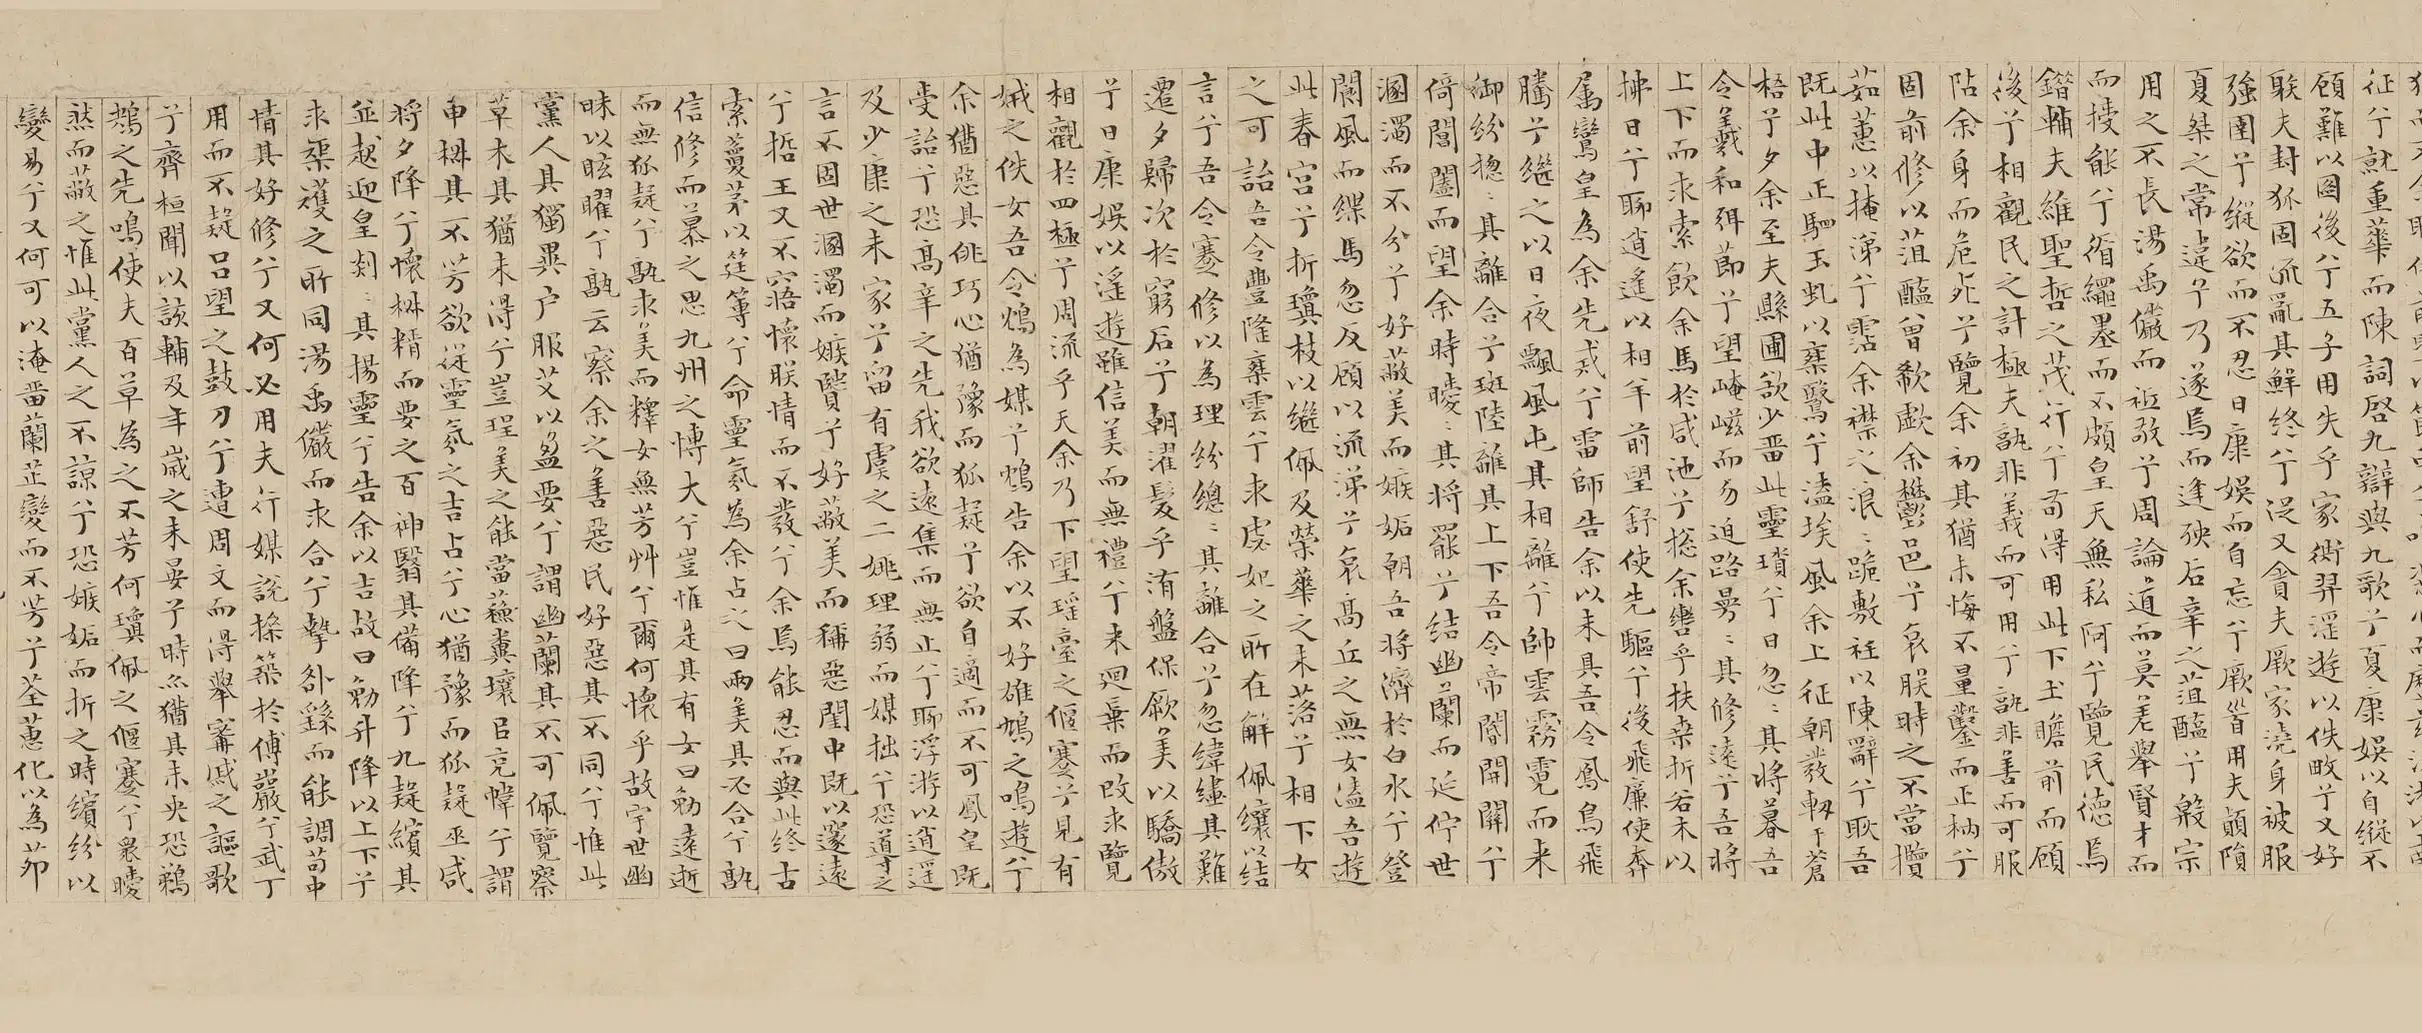 征兮就重華而陳詞啓九辯與九歌兮夏康娛以自縱不
顧難以圖後兮五子用失乎家衖羿淫遊以佚畋兮又好
射夫封狐固流亂其鮮終兮浞又貪夫厥家澆身被服
強圉兮縱欲而不忍日康娛而自忘兮厥首用夫顛隕
夏桀之常違兮乃遂焉而逢殃后辛之菹醢兮殷宗
用之不長湯禹儼而祗敬兮周論道而莫差舉賢才而
而授能兮循繩墨而不頗皇天無私阿兮覽民德焉
錯輔夫維聖哲之茂行兮苟得用此下土瞻前而顧
後兮相觀民之計極夫孰非義而可用兮孰非善而可服
阽余身而危死兮覽余初其猶未悔不量鑿而正枘兮
固前修以菹醢曾欷歔余鬱邑兮哀朕時之不當攬
茹蕙以掩涕兮霑余襟之浪〻跪敷衽以陳辭兮耿吾
既此中正駟玉虬以椉鷖兮溘埃風余上征朝發軔于蒼
梧兮夕余至夫縣圃欲少畱此靈瑣兮日忽〻其將暮吾
令羲和弭節兮望崦嵫而勿迫路曼〻其修遠兮吾將
上下而求索飲余馬於咸池兮揔余轡乎扶桑折若木以
拂日兮聊逍遙以相羊前望舒使先驅兮後飛廉使奔
屬鸞皇為余先戒兮雷師告余以未具吾令鳳鳥飛
騰兮繼之以日夜飄風屯其相離兮帥雲霧霓而来
御紛揔〻其離合兮斑陸離其上下吾令帝閽開關兮
倚閶闔而望余時曖〻其将罷兮結幽蘭而延佇世
溷濁而不分兮好蔽美而嫉妬朝吾将濟於白水兮登
閬風而緤馬忽反顧以流涕兮哀高丘之無女溘吾遊
此春宮兮折瓊枝以繼佩及榮華之未落兮相下女
之可詒吾令豐隆椉雲兮求虙妃之所在解佩纕以結
言兮吾令蹇修以為理紛總〻其離合兮忽緯繣其難
遷夕歸次於窮石兮朝濯髮乎洧盤保厥美以驕傲
兮日康娛以淫遊雖信美而無禮兮来違棄而改求覽
相觀於四極兮周流乎天余乃下望瑤臺之偃蹇兮見有
娀之佚女吾令鴆為媒兮鴆告余以不好雄鳩之鳴逝兮
余猶惡其佻巧心猶豫而狐疑兮欲自適而不可鳳皇既
受詒兮恐高辛之先我欲遠集而無止兮聊浮游以逍遥
及少康之未家兮畱有虞之二姚理弱而媒拙兮恐導之
言不固世溷濁而嫉賢兮好蔽美而稱惡閨中既以邃遠
兮哲王又不寤懷朕情而不發兮余焉能忍而與此終古
索藑茅以筳篿兮命靈氛為余占之曰兩美其必合兮孰
信修而慕之思九州之博大兮豈惟是其有女曰勉遠逝
而無狐疑兮孰求美而釋女無芳艸兮爾何懷乎故宇世幽
昧以眩曜兮孰云察余之善惡民好惡其不同兮惟此
黨人其獨異户服艾以盈要兮謂幽蘭其不可佩覽察
草木其猶未得兮豈珵美之能當蘓糞壤㠯充幃兮謂
申椒其不芳欲從靈氛之吉占兮心猶豫而狐疑巫咸
将夕降兮懷椒糈而要之百神翳其備降兮九疑繽其
並起迎皇剡〻其揚靈兮告余以吉故曰勉升降以上下兮
求榘矱之所同湯禹儼而求合兮摯咎繇而能調苟中
情其好修兮又何必用夫行媒說操築於傅巖兮武丁
用而不疑呂望之鼓刀兮遭周文而得舉甯戚之謳歌
兮齊桓聞以該輔及年歲之未晏兮時亦猶其未央恐鵜
鴂之先鳴使夫百草為之不芳何瓊佩之偃蹇兮衆薆
然而蔽之惟此黨人之不諒兮恐嫉妬而折之時繽紛以
變易兮又何可以淹畱蘭芷變而不芳兮荃蕙化以為茅